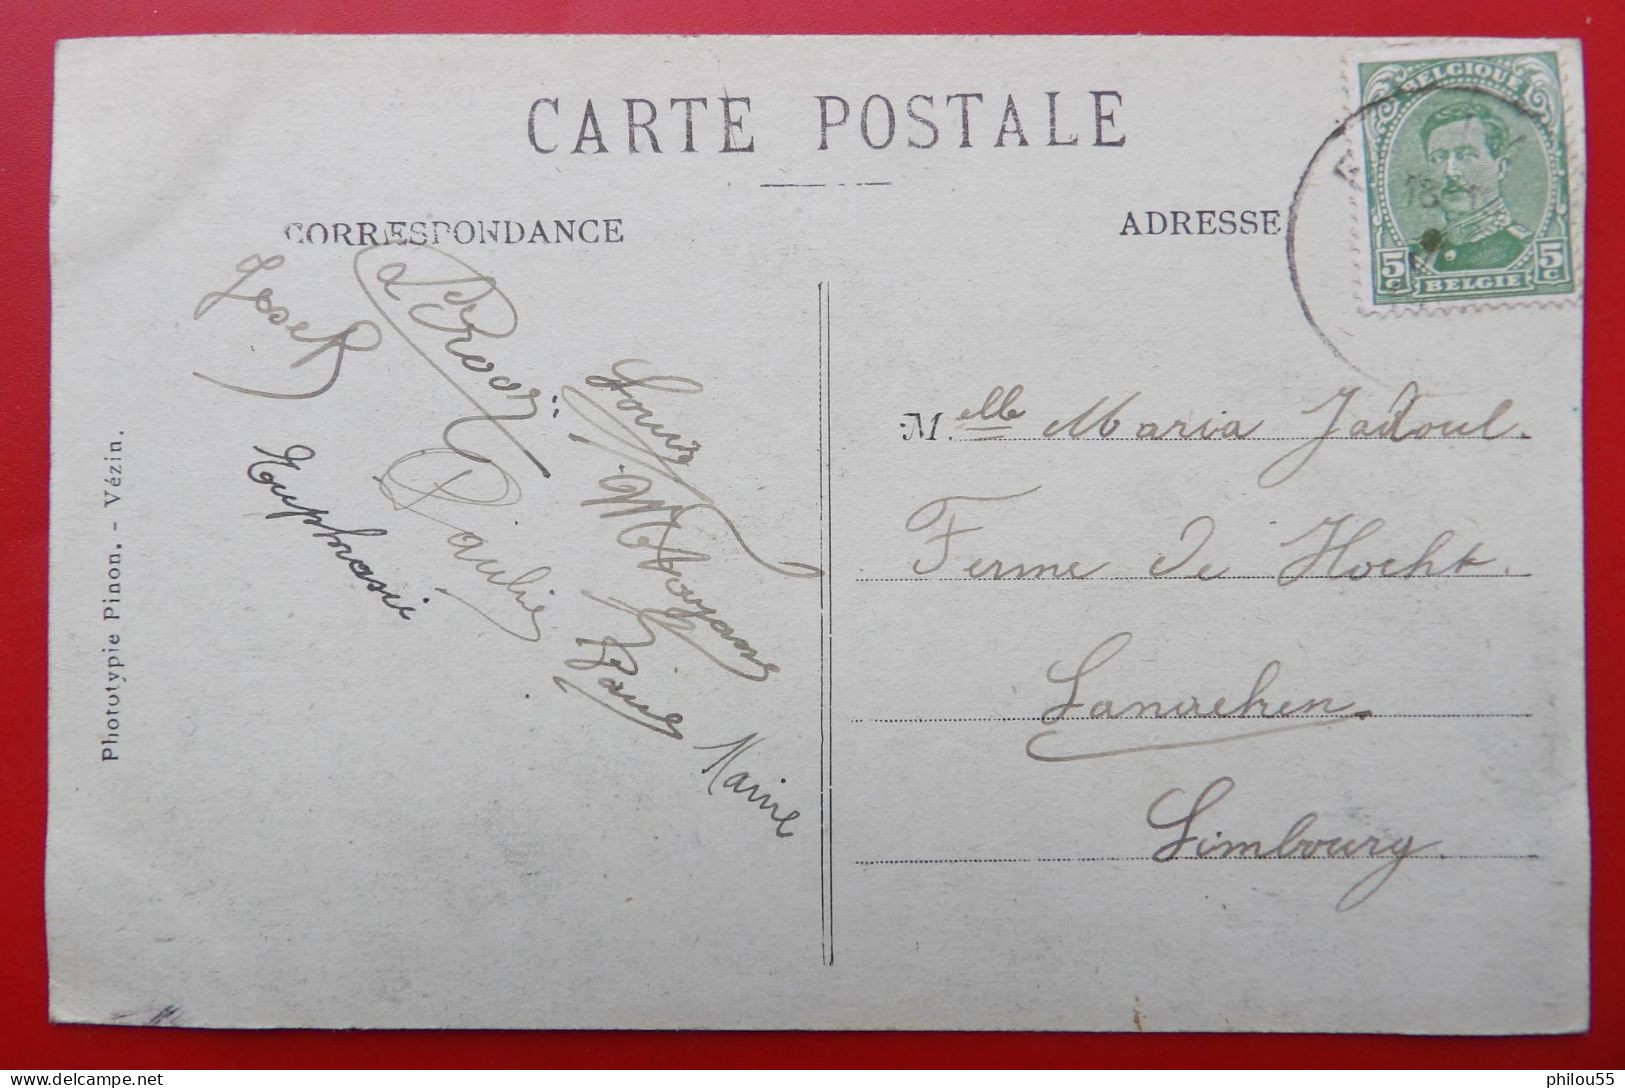 CARTE POSTALE
CORRESPONDANCE
ADRESSE
BELGIQUE
5c 5c
BELGIE
18
Joseph
Euphrasie
Louis
Marie
Phototypie Pinon. - Vézin.
M.elle Maria Jadoul.
Ferme de Hocht.
Lanaeken
Limbourg.
philou55
delcampe.net